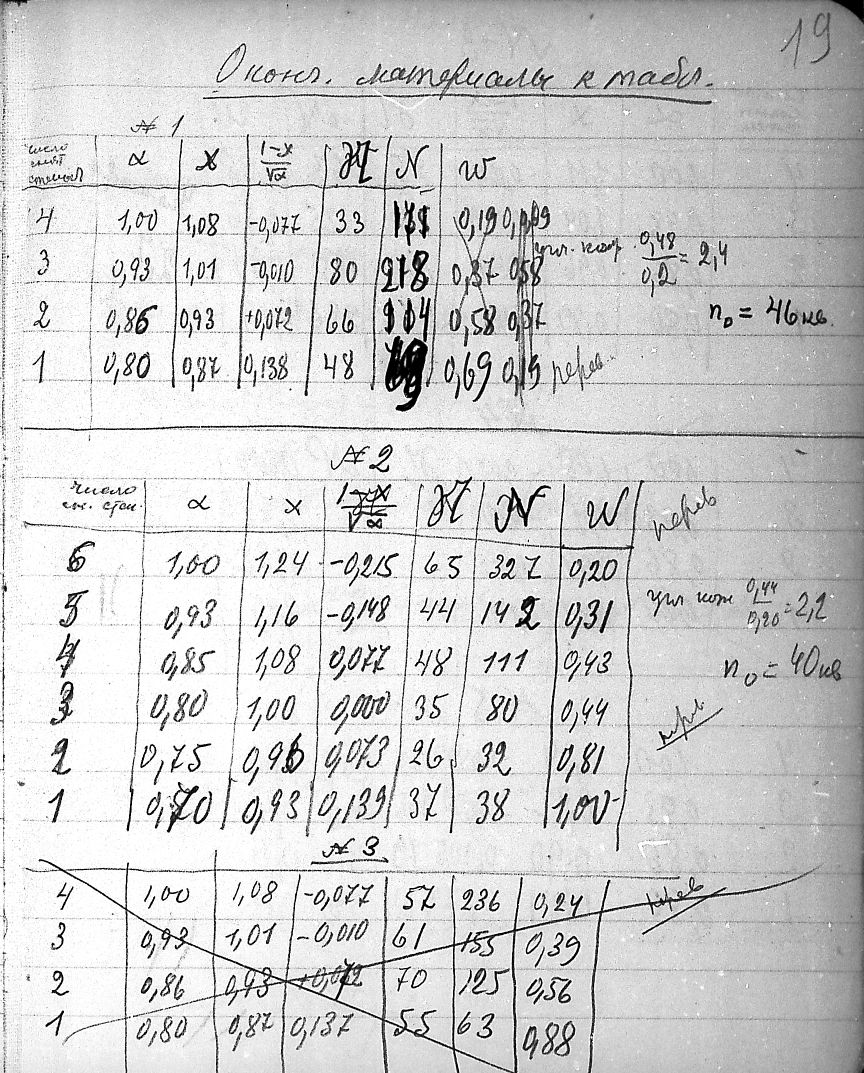 19
Оконч. материалы к табл.
№ 1
число α x 1-x/√α K N w
4 1,00 1,08 -0,077 33 0,19
3 0,93 1,01 -0,010 80 218 0,37 0,58 угл. коэф. 0,48/0,2 = 2,4
2 0,86 0,93 +0,072 66 0,58 0,37 n₀ = 46 кв.
1 0,80 0,87 0,138 48 0,69 0,19 перев.
№ 2
число α x 1-x/√α K N W перев
6 1,00 1,24 -0,215 65 327 0,20
5 0,93 1,16 -0,148 44 142 0,31 угл коэф 0,44/0,20 = 2,2
4 0,85 1,08 0,077 48 111 0,43 n₀ = 40 кв
3 0,80 1,00 0,000 35 80 0,44
2 0,75 0,93 0,073 26 32 0,81
1 0,70 0,93 0,139 37 38 1,00
№ 3
4 1,00 1,08 -0,077 57 236 0,24 перев
3 0,93 1,01 -0,010 61 155 0,39
2 0,86 0,93 +0,072 70 125 0,56
1 0,80 0,87 0,137 55 63 0,88